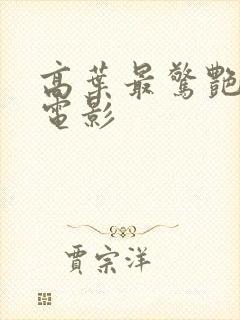 高葉最驚艷
電影
賈宗洋